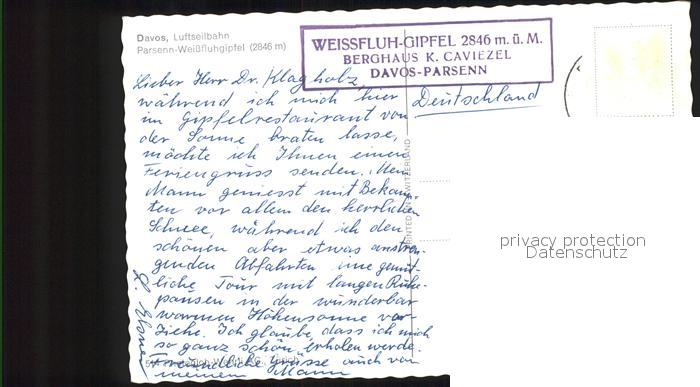 Davos, Luftseilbahn
Parsenn-Weißfluhgipfel (2846 m)
WEISSFLUH-GIPFEL 2846 m. ü. M.
BERGHAUS K. CAVIEZEL
DAVOS-PARSENN
Lieber Herr Dr. Klagholz,
während ich mich hier
im Gipfelrestaurant von
der Sonne braten lasse,
möchte ich Ihnen einen
Feriengruss senden. Mein
Mann geniesst mit Bekann-
ten vor allem den herrlichen
Schnee, während ich den
schönen aber etwas anstren-
genden Abfahrten eine gemüt-
liche Tour mit langen Ruhe-
pausen in der wunderbar
warmen Höhensonne vor-
ziehe. Ich glaube, dass ich mich
so ganz schön erholen werde.
Freundliche Grüsse auch von
meinem Mann
Deutschland
PRINTED IN SWITZERLAND
privacy protection
Datenschutz